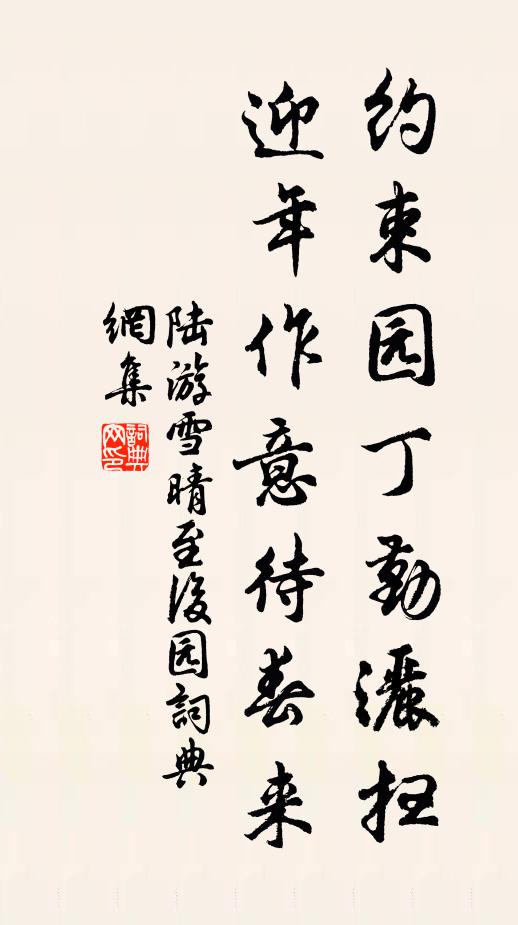 约束园丁勤灑扫
迎年作意待春来
陆游雪晴至後园詞典
網集
詞典
网印